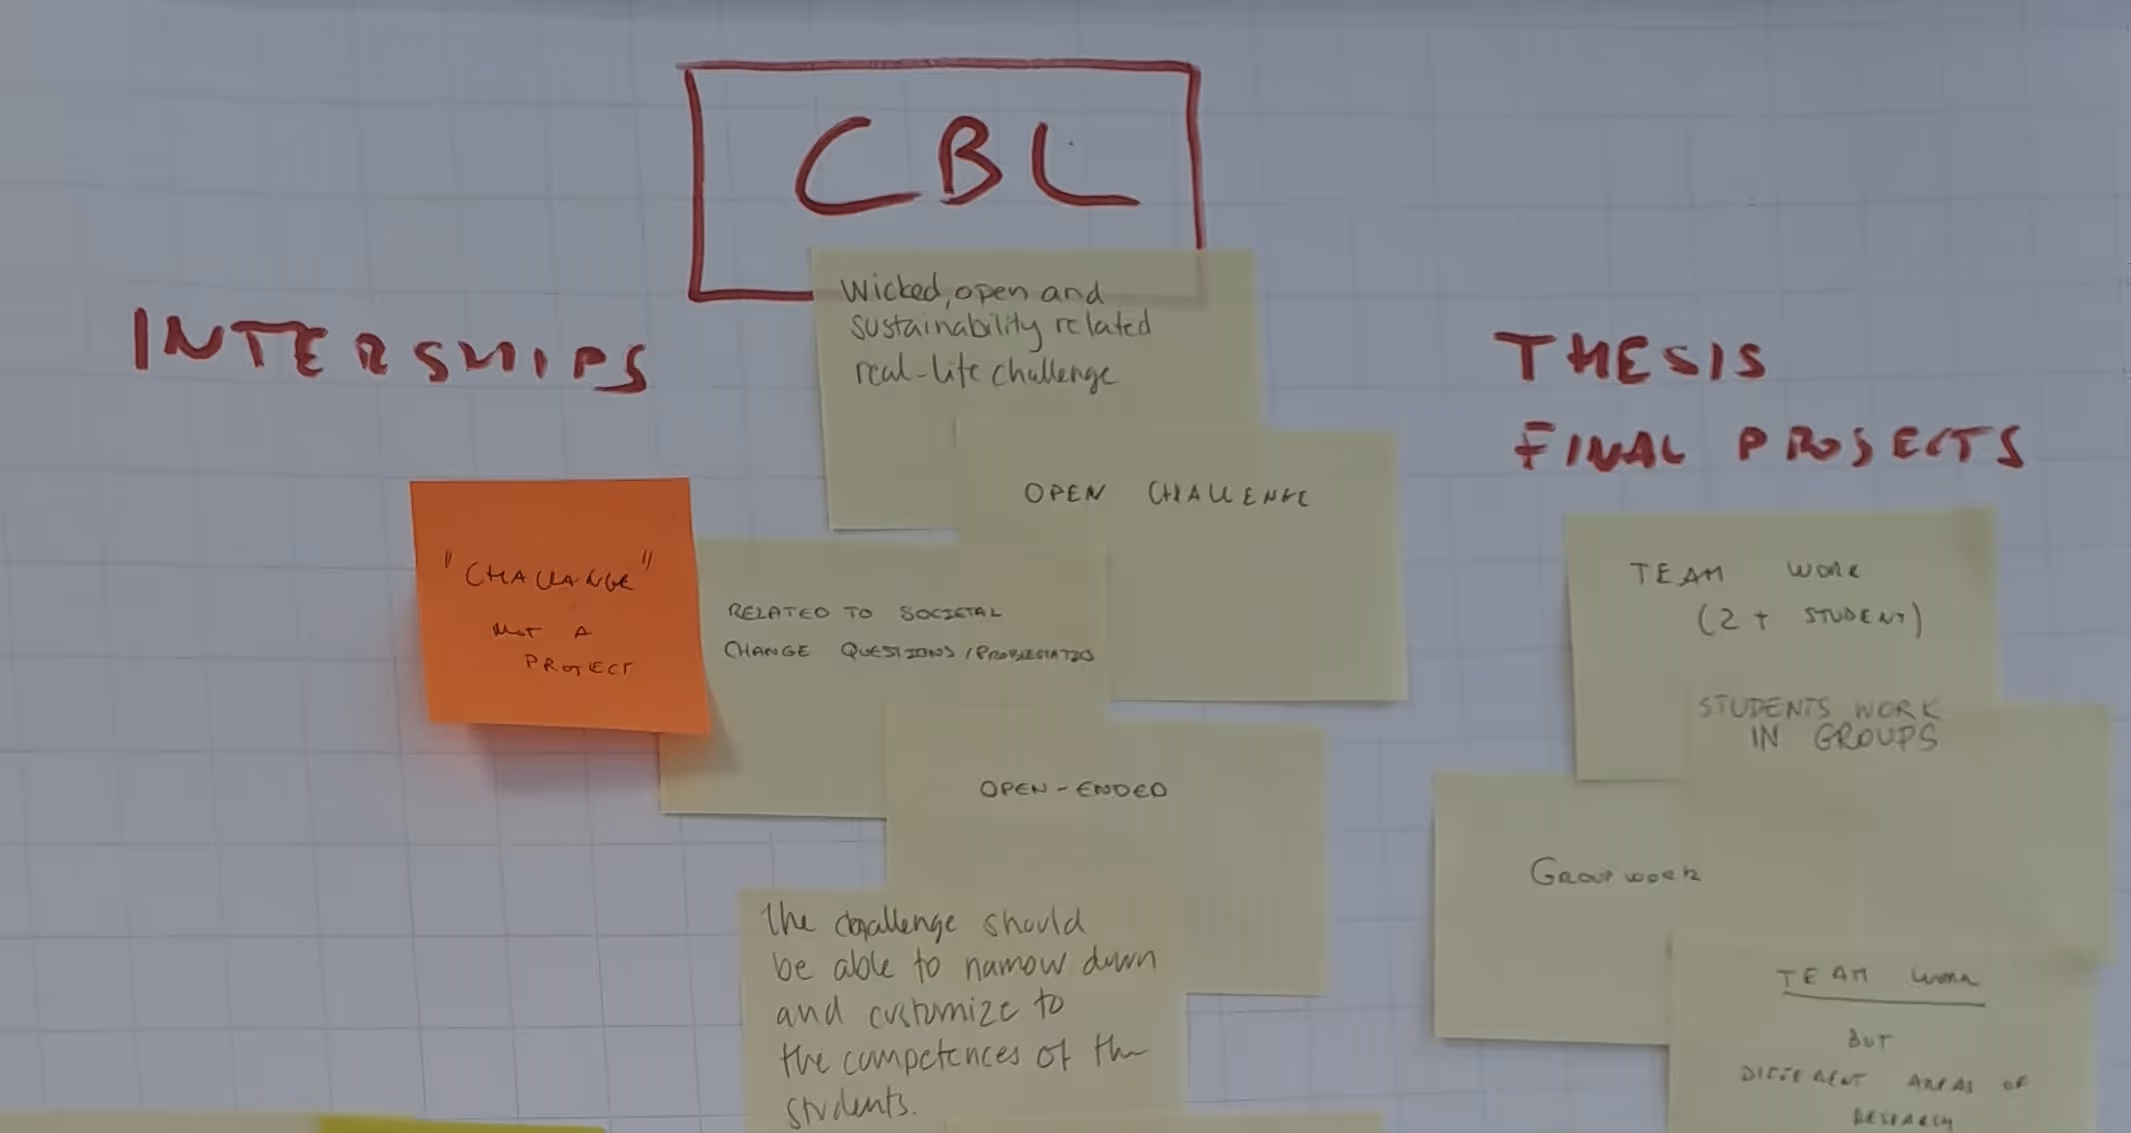 CBL
INTERSHIPS
THESIS
FINAL PROJECTS
Wicked, open and
sustainability related
real-life challenge
OPEN CHALLENGE
"CHALLANGE"
NOT A
PROJECT
RELATED TO SOCIETAL
CHANGE QUESTIONS /
OPEN-ENDED
The challenge should
be able to narrow down
and customize to
the competences of the
students.
TEAM WORK
(2+ STUDENT)
STUDENTS WORK
IN GROUPS
Group work
TEAM WORK
BUT
DIFFERENT AREAS OF
RESEARCH